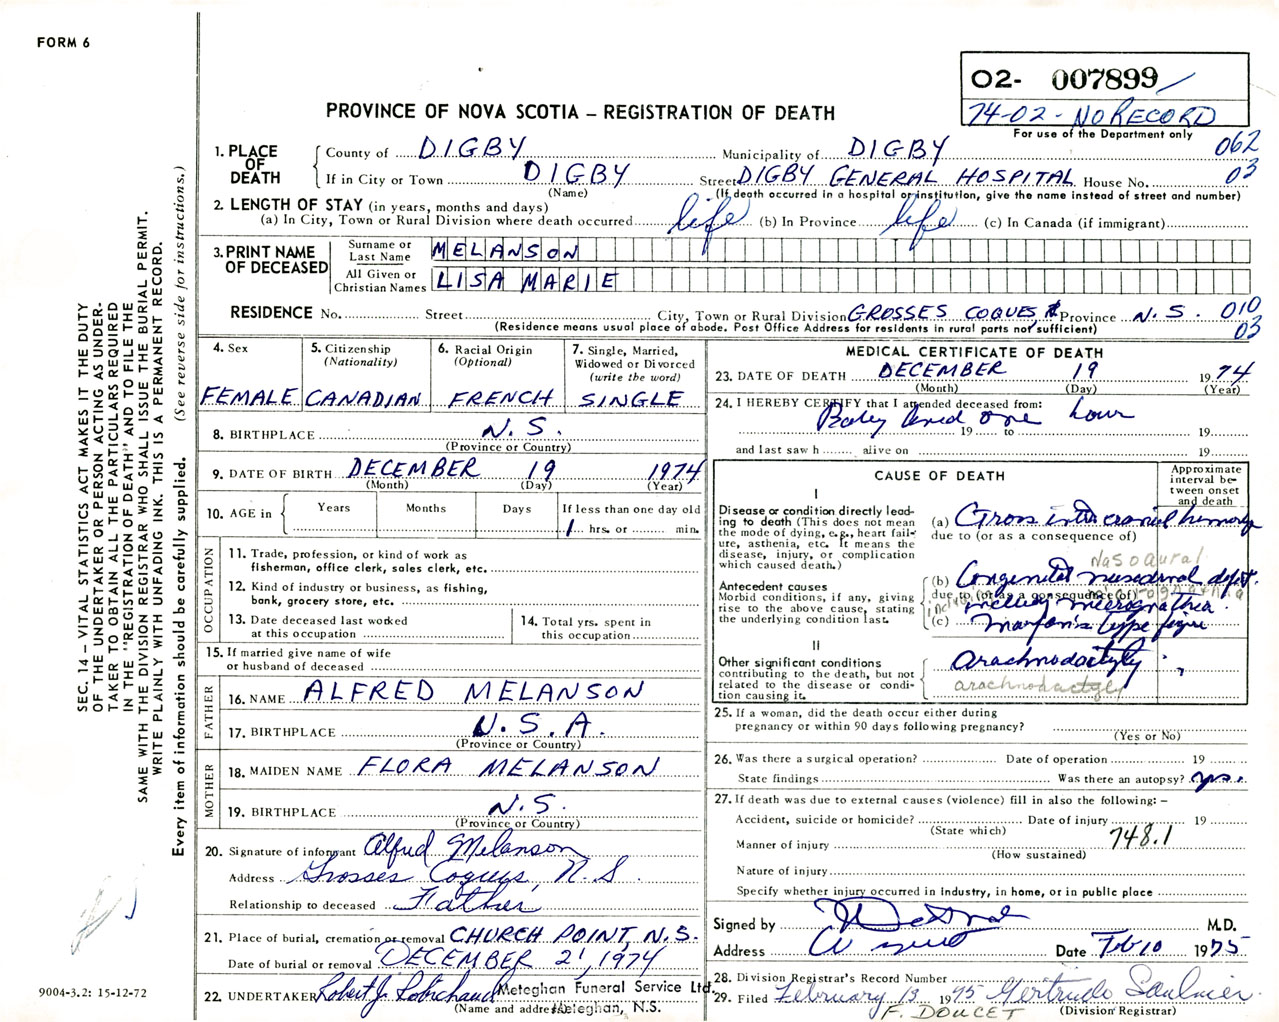 FORM 6
O2- 007899
74-02 - NO RECORD
For use of the Department only
PROVINCE OF NOVA SCOTIA – REGISTRATION OF DEATH
062
03
1. PLACE OF DEATH
County of DIGBY Municipality of DIGBY
If in City or Town DIGBY Street DIGBY GENERAL HOSPITAL House No.
(Name) (If death occurred in a hospital or institution, give the name instead of street and number)
2. LENGTH OF STAY (in years, months and days)
(a) In City, Town or Rural Division where death occurred life (b) In Province life (c) In Canada (if immigrant)
3. PRINT NAME OF DECEASED
Surname or Last Name MELANSON
All Given or Christian Names LISA MARIE
RESIDENCE No. Street City, Town or Rural Division GROSSES COQUES, Province N.S. 010
03
(Residence means usual place of abode. Post Office Address for residents in rural parts not sufficient)
4. Sex
FEMALE
5. Citizenship
(Nationality)
CANADIAN
6. Racial Origin
(Optional)
FRENCH
7. Single, Married,
Widowed or Divorced
(write the word)
SINGLE
8. BIRTHPLACE N.S.
(Province or Country)
9. DATE OF BIRTH DECEMBER 19 1974
(Month) (Day) (Year)
10. AGE in Years Months Days If less than one day old
1 hrs. or min.
OCCUPATION
11. Trade, profession, or kind of work as
fisherman, office clerk, sales clerk, etc.
12. Kind of industry or business, as fishing,
bank, grocery store, etc.
13. Date deceased last worked
at this occupation
14. Total yrs. spent in
this occupation
15. If married give name of wife
or husband of deceased
FATHER
16. NAME ALFRED MELANSON
17. BIRTHPLACE N.S.A.
(Province or Country)
MOTHER
18. MAIDEN NAME FLORA MELANSON
19. BIRTHPLACE N.S.
(Province or Country)
20. Signature of informant Alfred Melanson
Address Grosses Coques, N S
Relationship to deceased Father
21. Place of burial, cremation or removal CHURCH POINT, N.S.
Date of burial or removal DECEMBER 21, 1974
22. UNDERTAKER Robert J. Robichaud Meteghan Funeral Service Ltd.
(Name and address) Meteghan, N.S.
MEDICAL CERTIFICATE OF DEATH
23. DATE OF DEATH DECEMBER 19 1974
(Month) (Day) (Year)
24. I HEREBY CERTIFY that I attended deceased from:
Baby lived one hour
19 to 19
and last saw h alive on 19
CAUSE OF DEATH
Approximate interval between onset and death
I
Disease or condition directly lead-
ing to death (This does not mean
the mode of dying, e.g., heart fail-
ure, asthenia, etc. It means the
disease, injury, or complication
which caused death.)
(a) Gross intercranial hemorage
due to (or as a consequence of)
Nasoaural
Antecedent causes
Morbid conditions, if any, giving
rise to the above cause, stating
the underlying condition last.
(b) Congenital defect.
due to (or as a consequence of)
micrognathia
(c) Marfan's type
II
Other significant conditions
contributing to the death, but not
related to the disease or condi-
tion causing it.
Arachnodactyly
arachnodactyly
25. If a woman, did the death occur either during
pregnancy or within 90 days following pregnancy?
(Yes or No)
26. Was there a surgical operation? Date of operation 19
State findings Was there an autopsy? yes.
27. If death was due to external causes (violence) fill in also the following: –
Accident, suicide or homicide? Date of injury 19
(State which) 748.1
Manner of injury
(How sustained)
Nature of injury
Specify whether injury occurred in Industry, in home, or in public place
Signed by M.D.
Address Date Feb 10 1975
28. Division Registrar's Record Number
29. Filed February 13 1975 Gertrude Saulnier
F. DOUCET (Division Registrar)
SEC. 14 – VITAL STATISTICS ACT MAKES IT THE DUTY
OF THE UNDERTAKER OR PERSON ACTING AS UNDER-
TAKER TO OBTAIN ALL THE PARTICULARS REQUIRED
IN THE "REGISTRATION OF DEATH" AND TO FILE THE
SAME WITH THE DIVISION REGISTRAR WHO SHALL ISSUE THE BURIAL PERMIT.
WRITE PLAINLY WITH UNFADING INK. THIS IS A PERMANENT RECORD.
Every item of information should be carefully supplied. (See reverse side for instructions.)
9004-3.2: 15-12-72